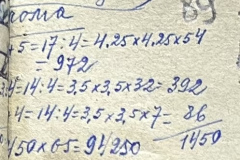 рома
89
+5=17:4=4.25×4,25×54
=972
4=14:4=3,5×3,5×32=392
4=14:4=3,5×3,5×7=86
1450
450×65=94250